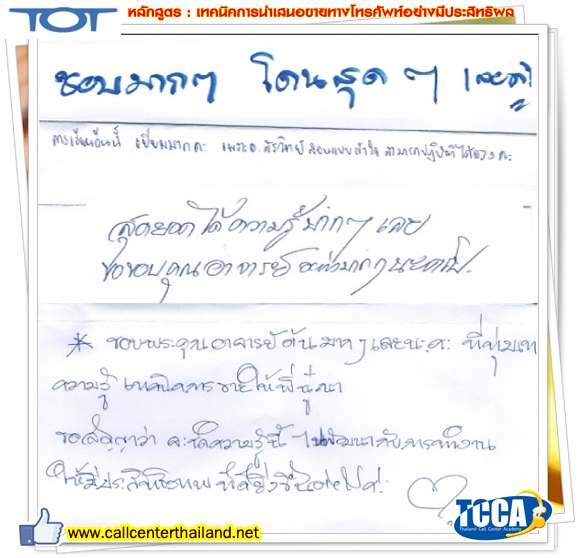 TOT
หลักสูตร : เทคนิคการนำเสนอขายทางโทรศัพท์อย่างมีประสิทธิผล
ชอบมากๆ โดนสุด ๆ เลยค่ะ
การเรียนวันนี้ เยี่ยมมากค่ะ เพราะอ. สอนแบบเข้าใจ สามารถปฏิบัติได้จริงค่ะ
สุดยอดได้ความรู้มากๆ เลย
ขอขอบคุณอาจารย์ อย่างมากๆนะคะ
* ขอบพระคุณอาจารย์ต้นมากๆเลยนะคะ ที่ทุ่มเท
ความรู้ เทคนิคการขายให้พี่
ขอสัญญาว่า จะนำความรู้นี้ ไปพัฒนากับการทำงาน
ให้มีประสิทธิภาพ ที่ดียิ่งขึ้นต่อไปค่ะ
Like
www.callcenterthailand.net
TCCA
Thailand Call Center Academy